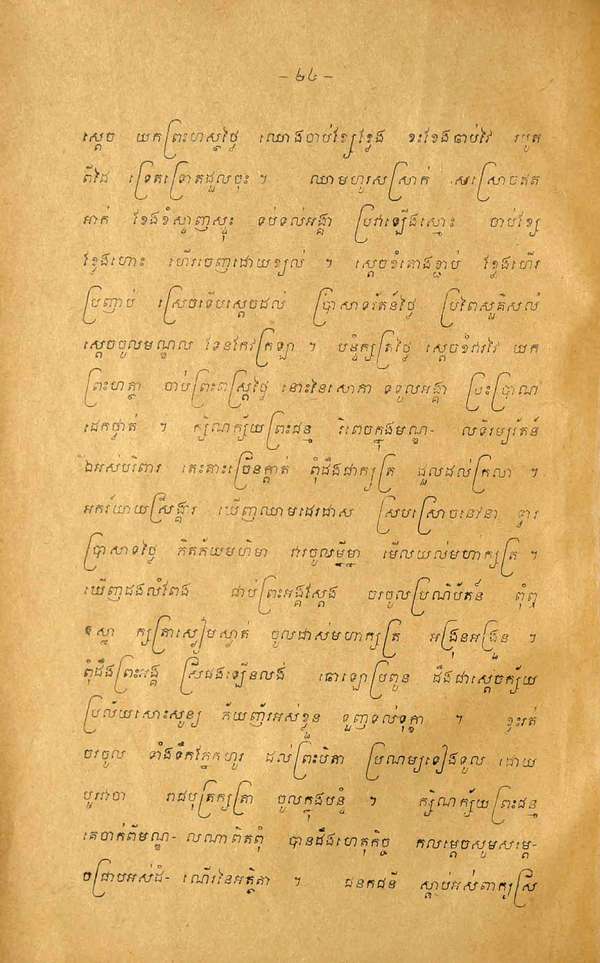 - ៤៤ -
ស្ដេច យកព្រះហស្តថ្ងៃ ឈោងចាប់ខ្សែខ្លែង ខះខែងចាប់វៃ របូត
ពីដៃ ទ្រេតទ្រោតដួលចុះ ។ ឈាមហូរសស្រាក់
អាក់ ខែងខំស្ទុះ ទប់ទល់អង្គា ប្រវាឡើងស្មោះ ចាប់ខ្សែ
ខ្លែងហោះ ហើរចេញដោយខ្យល់ ។ ស្ដេចខំតោងខ្ជាប់ ខ្លែងហើរ
ប្រញាប់ ស្រេចទើបស្ដេចដល់ ប្រាសាទរ័តន៍ថ្ងៃ ប្រពៃសួគ៌សល់
ស្ដេចចូលមណ្ឌល ទែនកែវក្រឡា ។ បន្ទំក្សត្រថ្ងៃ ស្ដេចខំរាវរៃ យក
ព្រះហត្ថា ចាប់ព្រះពស្ត្រថ្ងៃ នោះនៃសោភា ទទួលអង្គា ប្រះប្រាណ
ដេកផ្ងាត់ ។ ក្សិណក្ស័យព្រះជន្ម រំពេចក្នុងមណ្ឌ- លទិរម្យរ័តន៍
ឯអស់បរិពារ តេះតោះច្រើនក្ដាត់ ពុំដឹងជាក្សត្រ ដួលដល់ក្រលា ។
អករយាយស្រីង្គារ ឃើញឈាមដេរដាស ស្រែបស្រោចនៅនា ទ្វារ
ប្រាសាទថ្ងៃ ភិតភ័យមហិមា វារចូលម្នីម្នា មើលយល់មហាក្សត្រ ។
ឃើញដងលំពែង ជាប់ព្រះអង្គស្ដែង ចរចូលប្រណិប័តន៍
ក្សត្រាស្ដៀបស្លាត់ ចូលដាស់មហាក្សត្រ អង្រុនអង្រួន ។
ពុំដឹងព្រះអង្គ ស្រីជងឡើនលង់ ឆោឡោប្រពួន ដឹងជាស្ដេចក្ស័យ
ប្រល័យសោះសូន្យ ភ័យញ័រអស់ខ្លួន ទួញទល់ទុក្ខា ។
ចរចូល ទាំងទឹកភ្នែកហូរ ដល់ព្រះបិតា ប្រណម្យទៀងទូល ដោយ
បួរវាចា រាជបុត្រក្សត្រា ចូលក្នុងបន្ទំ ។ ក្សិណក្ស័យព្រះជន្ម
គេចាក់ពីមណ្ឌ- លណាពិតពុំ បានដឹងហេតុកិច្ច កលម្ដេចសូមសម្ដេ-
ចជ្រាបអស់ដំ- ណើរនៃអត្ថិតា ។ ជនកជនី ស្ដាប់អស់ពាក្យស្រី